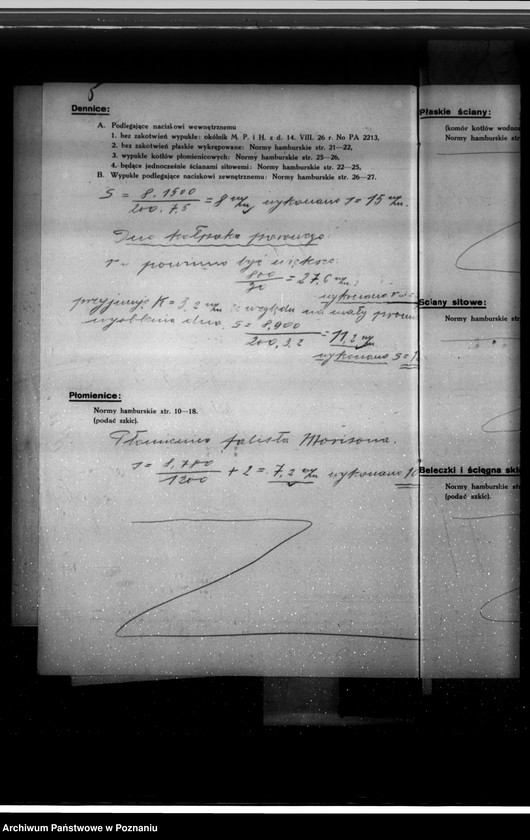 5
Dennice:
A. Podlegające naciskowi wewnętrznemu
1. bez zakotwień wypukłe: okólnik M. P. i H. z d. 14. VIII. 26 r. No PA 2213,
2. bez zakotwień płaskie wykrępowane: Normy hamburskie str. 21—22,
3. wypukłe kotłów płomienicowych: Normy hamburskie str. 25—26,
4. będące jednocześnie ścianami sitowemi: Normy hamburskie str. 22—25,
B. Wypukłe podlegające naciskowi zewnętrznemu: Normy hamburskie str. 26—27.
S = 8.1500 / 200.7,5 = 8 m/m wykonano s = 15 m/m.
Dno kołpaka parowego
r - powinno być większe:
800 / = 27,6 m/m;
wykonano r =
przyjmuję K = 3,2 ze względu na mały
wyoblenia dna, S = 8.900 / 200.3,2 = 11,2 m/m
wykonano s =
Płomienice:
Normy hamburskie str. 10—18.
(podać szkic).
Płomienica falista Morisona.
s = 8.780 / 1200 + 2 = 7,2 m/m wykonano
Płaskie ściany:
(komór kotłów wodno
Normy hamburskie str
Ściany sitowe:
Normy hamburskie str
Beleczki i ścięgna skle
Normy hamburskie str
(podać szkic).
Archiwum Państwowe w Poznaniu